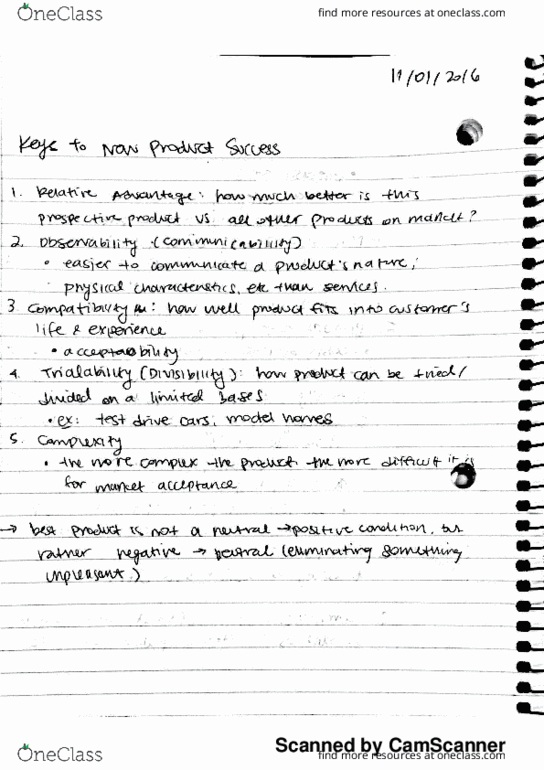 OneClass
find more resources at oneclass.com
11/01/2016
Keys to New Product Success
1. Relative Advantage: how much better is this
prospective product vs. all other products on market?
2. Observability (communicability)
• easier to communicate a product's nature,
physical characteristics, etc than services.
3. Compatibility : how well product fits into customer's
life & experience
• acceptability
4. Trialability (Divisibility): how product can be tried/
divided on a limited bases
• ex: test drive cars, model homes
5. Complexity
• the more complex the product the more difficult it is
for market acceptance
→ best product is not a neutral → positive condition, but
rather negative → neutral (eliminating something
unpleasant)
Scanned by CamScanner
OneClass
find more resources at oneclass.com